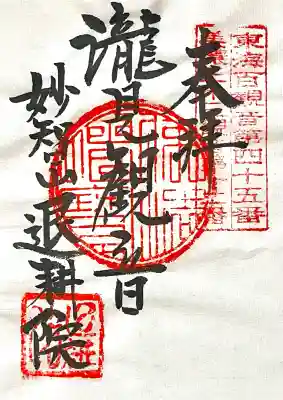 東海百観音第四十五番
奉拝
瀧見観音
妙智山退耕院